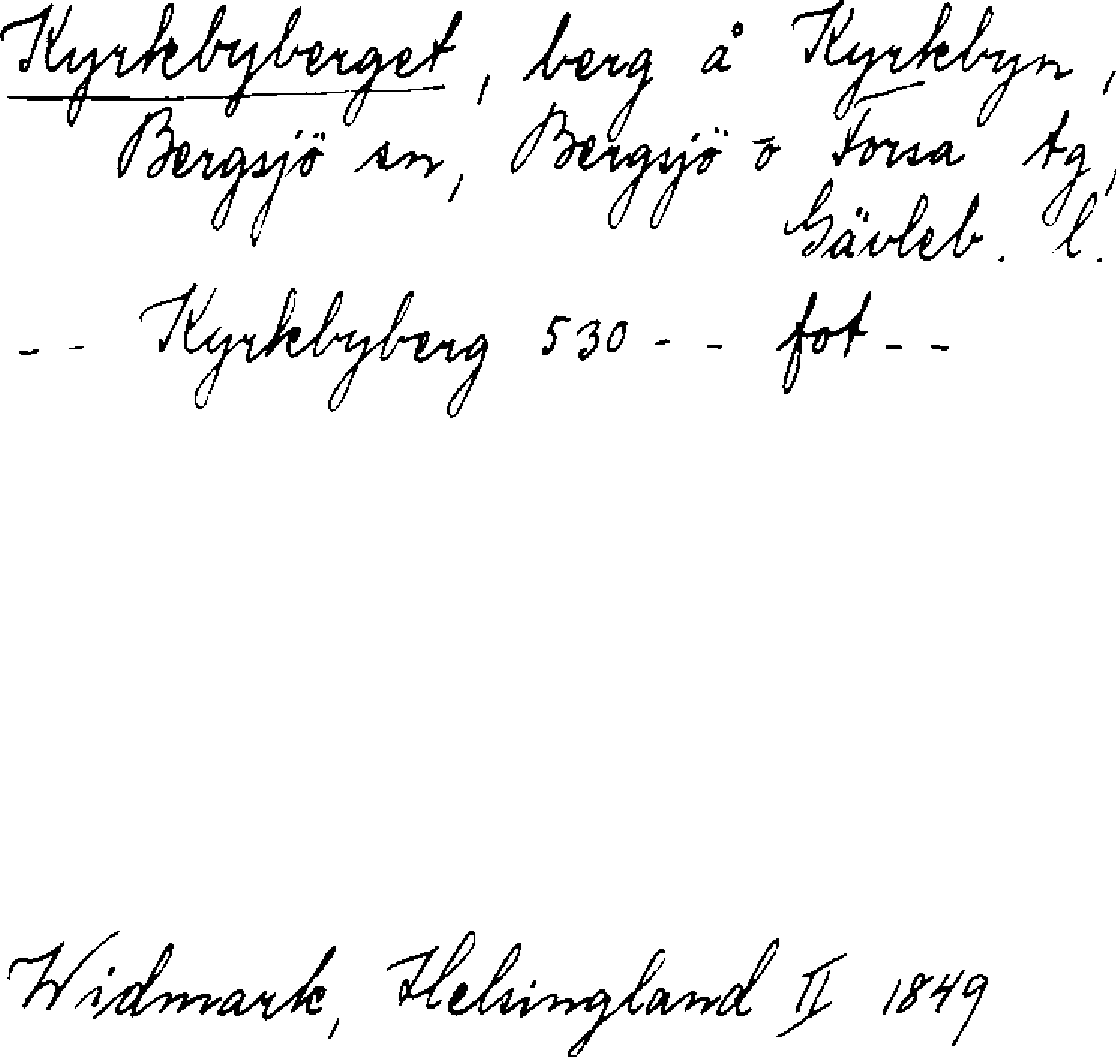 Kyrkbyberget, berg å Kyrkbyn,
Bergsjö sn, Bergsjö o Forsa tg,
Gävleb. l.
-- Kyrkbyberg 530 -- fot --
Widmark, Helsingland II 1849